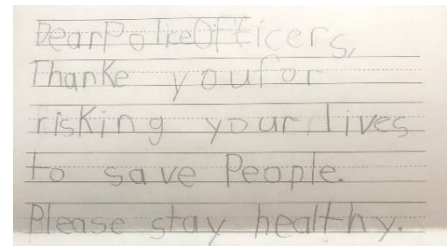 Dear Police Officers,
Thanke you for
risking your lives
to save People.
Please stay healthy.